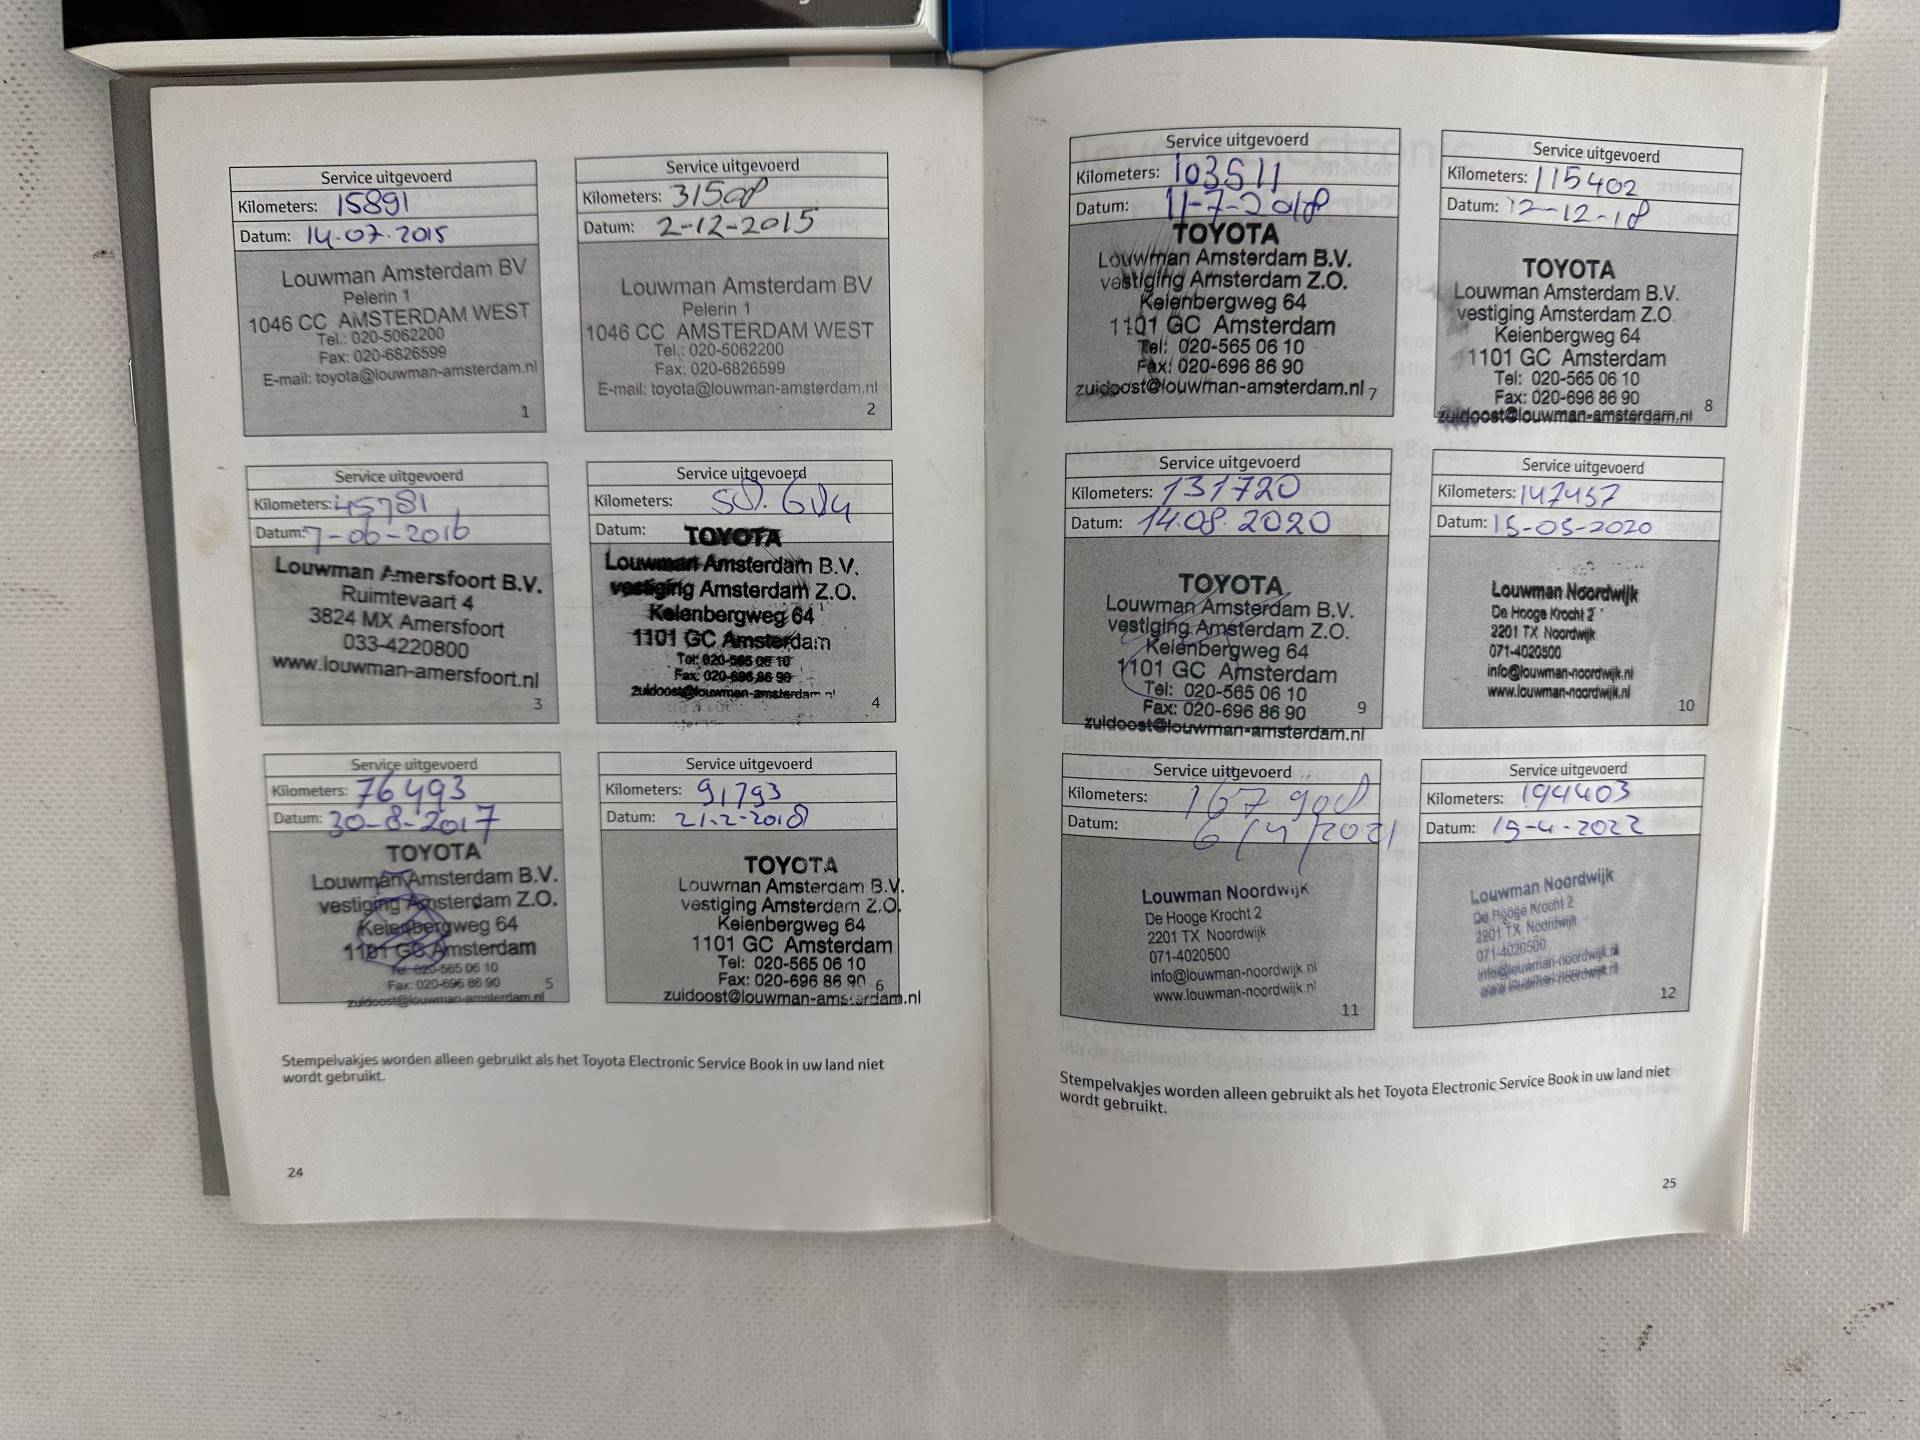 Service uitgevoerd
Kilometers: 15891
Datum: 14.07.2015
Louwman Amsterdam BV
Pelerin 1
1046 CC AMSTERDAM WEST
Tel.: 020-5062200
Fax: 020-6826599
E-mail: toyota@louwman-amsterdam.nl
1
Service uitgevoerd
Kilometers: 31508
Datum: 2-12-2015
Louwman Amsterdam BV
Pelerin 1
1046 CC AMSTERDAM WEST
Tel.: 020-5062200
Fax: 020-6826599
E-mail: toyota@louwman-amsterdam.nl
2
Service uitgevoerd
Kilometers: 45781
Datum: 7-06-2016
Louwman Amersfoort B.V.
Ruimtevaart 4
3824 MX Amersfoort
033-4220800
www.louwman-amersfoort.nl
3
Service uitgevoerd
Kilometers:
Datum:
TOYOTA
Louwman Amsterdam B.V.
vestiging Amsterdam Z.O.
Keienbergweg 64
1101 GC Amsterdam
Tel: 020-565 06 10
Fax: 020-696 86 90
zuidoost@louwman-amsterdam.nl
4
Service uitgevoerd
Kilometers: 76493
Datum: 30-8-2017
TOYOTA
Louwman Amsterdam B.V.
vestiging Amsterdam Z.O.
Keienbergweg 64
1101 GC Amsterdam
Tel: 020-565 06 10
Fax: 020-696 86 90
zuidoost@louwman-amsterdam.nl
5
Service uitgevoerd
Kilometers: 91793
Datum: 21-2-2018
TOYOTA
Louwman Amsterdam B.V.
vestiging Amsterdam Z.O.
Keienbergweg 64
1101 GC Amsterdam
Tel: 020-565 06 10
Fax: 020-696 86 90
zuidoost@louwman-amsterdam.nl
6
Stempelvakjes worden alleen gebruikt als het Toyota Electronic Service Book in uw land niet
wordt gebruikt.
24
Service uitgevoerd
Kilometers: 103511
Datum: 11-7-2018
TOYOTA
Louwman Amsterdam B.V.
vestiging Amsterdam Z.O.
Keienbergweg 64
1101 GC Amsterdam
Tel: 020-565 06 10
Fax: 020-696 86 90
zuidoost@louwman-amsterdam.nl
7
Service uitgevoerd
Kilometers: 115402
Datum: 12-12-18
TOYOTA
Louwman Amsterdam B.V.
vestiging Amsterdam Z.O.
Keienbergweg 64
1101 GC Amsterdam
Tel: 020-565 06 10
Fax: 020-696 86 90
zuidoost@louwman-amsterdam.nl
8
Service uitgevoerd
Kilometers: 131720
Datum: 14.08.2020
TOYOTA
Louwman Amsterdam B.V.
vestiging Amsterdam Z.O.
Keienbergweg 64
1101 GC Amsterdam
Tel: 020-565 06 10
Fax: 020-696 86 90
zuidoost@louwman-amsterdam.nl
9
Service uitgevoerd
Kilometers: 147457
Datum: 15-05-2020
Louwman Noordwijk
De Hooge Krocht 2
2201 TX Noordwijk
071-4020500
info@louwman-noordwijk.nl
www.louwman-noordwijk.nl
10
Service uitgevoerd
Kilometers: 167908
Datum: 6/4/2021
Louwman Noordwijk
De Hooge Krocht 2
2201 TX Noordwijk
071-4020500
info@louwman-noordwijk.nl
www.louwman-noordwijk.nl
11
Service uitgevoerd
Kilometers: 194403
Datum: 19-4-2022
Louwman Noordwijk
De Hooge Krocht 2
2201 TX Noordwijk
071-4020500
info@louwman-noordwijk.nl
www.louwman-noordwijk.nl
12
Stempelvakjes worden alleen gebruikt als het Toyota Electronic Service Book in uw land niet
wordt gebruikt.
25